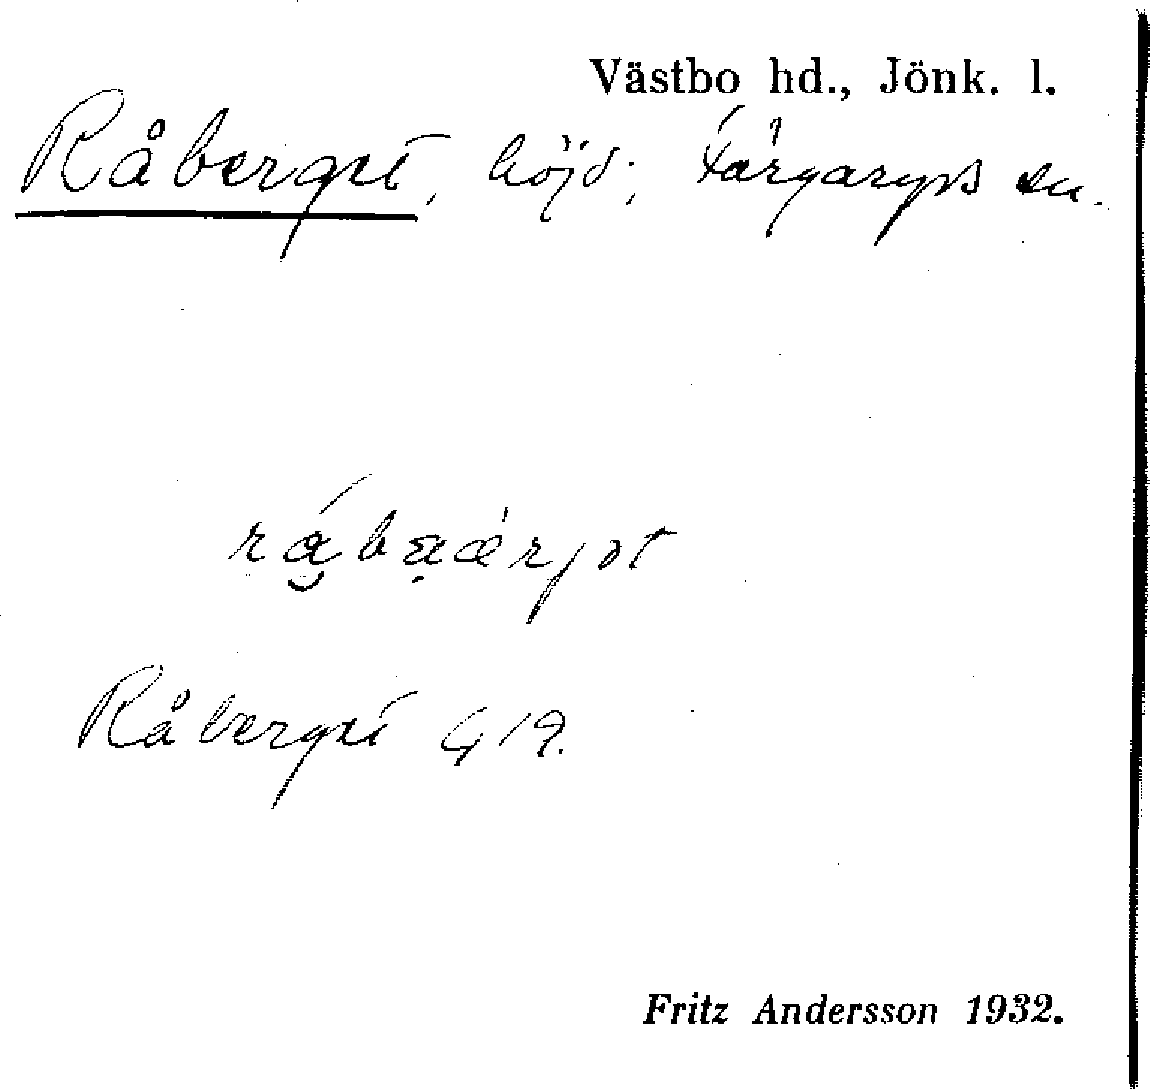 Västbo hd., Jönk. l.
Råberget, höjd; Färgaryds sn.
Råberget G 19.
Fritz Andersson 1932.